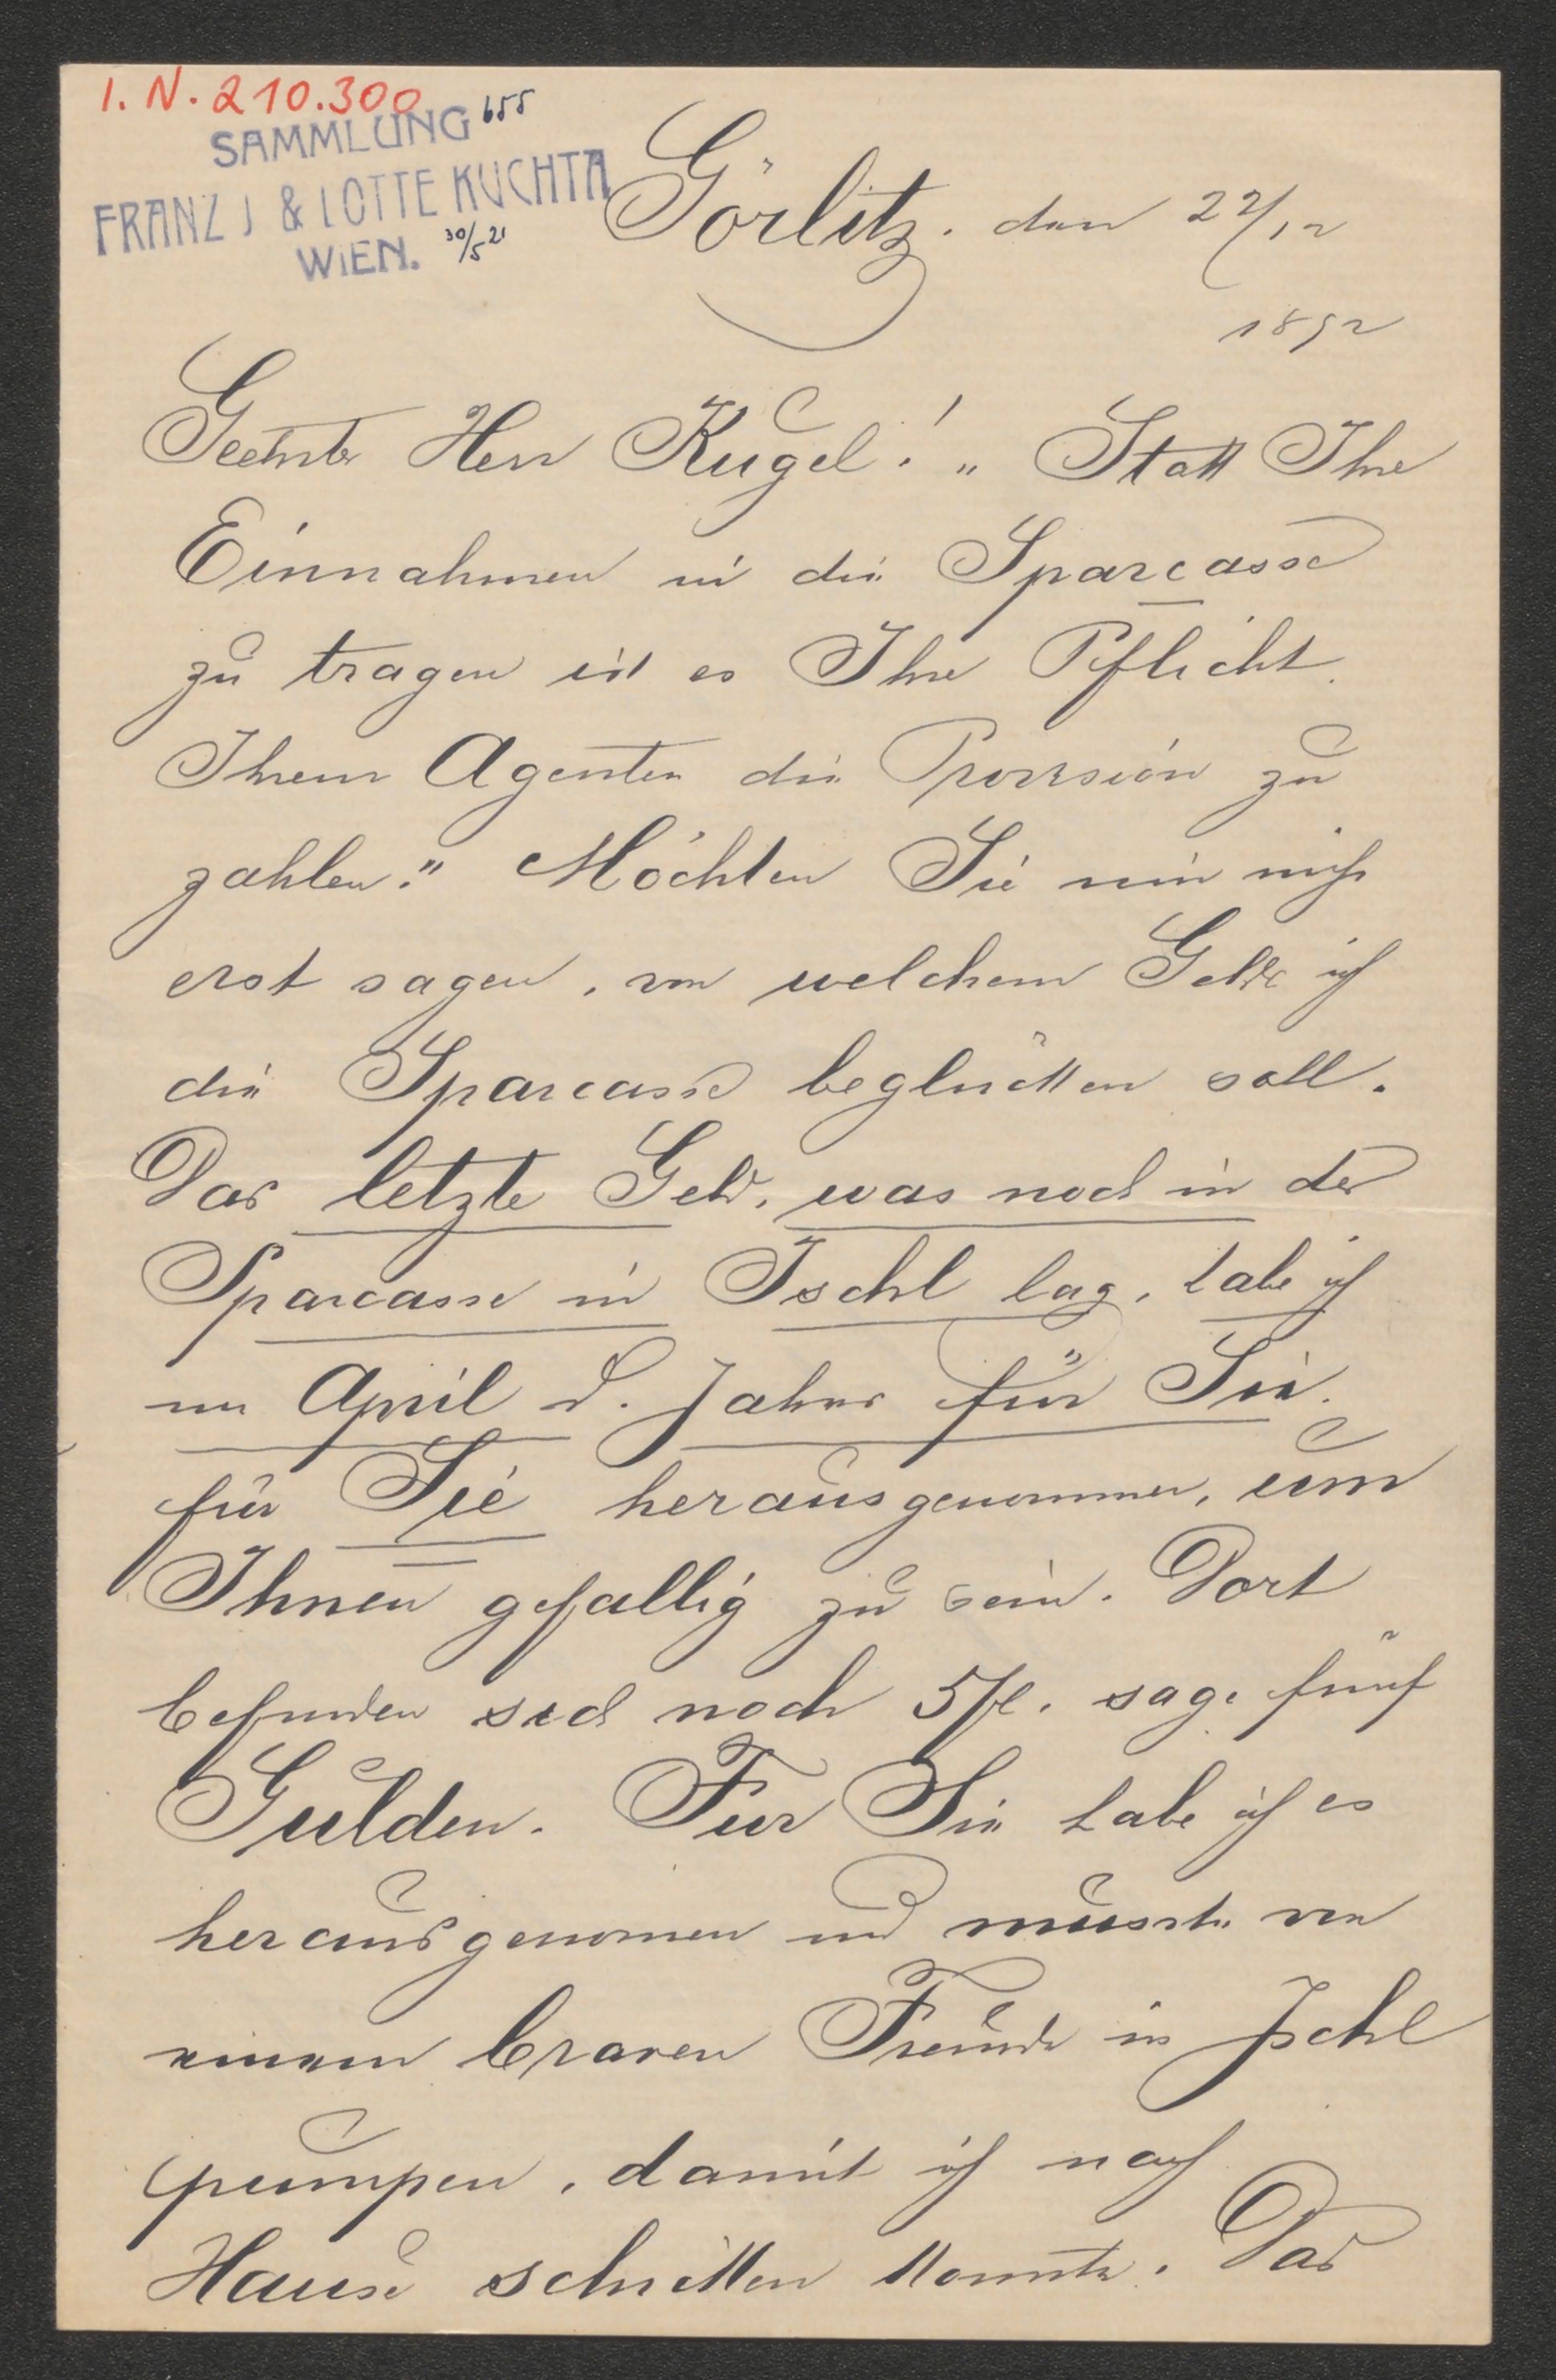 I. N. 210.300
SAMMLUNG 655
FRANZ J & LOTTE KUCHTA
WIEN. 30/5 21
Görlitz. den 22/12
1892
Geehrter Herr Kugel! „Statt Ihre
Einnahmen in die Sparcasse
zu tragen ist es Ihre Pflicht
Ihrem Agenten die Provision zu
zahlen." Möchten Sie mir nicht
erst sagen, von welchem Gelde ich
die Sparcasse beglücken soll.
Das letzte Geld, was noch in der
Sparcasse in Ischl lag, habe ich
im April d. Jahres für Sie.
für Sie herausgenommen, um
Ihnen gefällig zu sein. Dort
befinden sich noch 5 fl. sage fünf
Gulden. Für Sie habe ich es
herausgenomen und musste von
einem braven Freunde in Ischl
pumpen, damit ich nach
Hause schicken konnte. Das